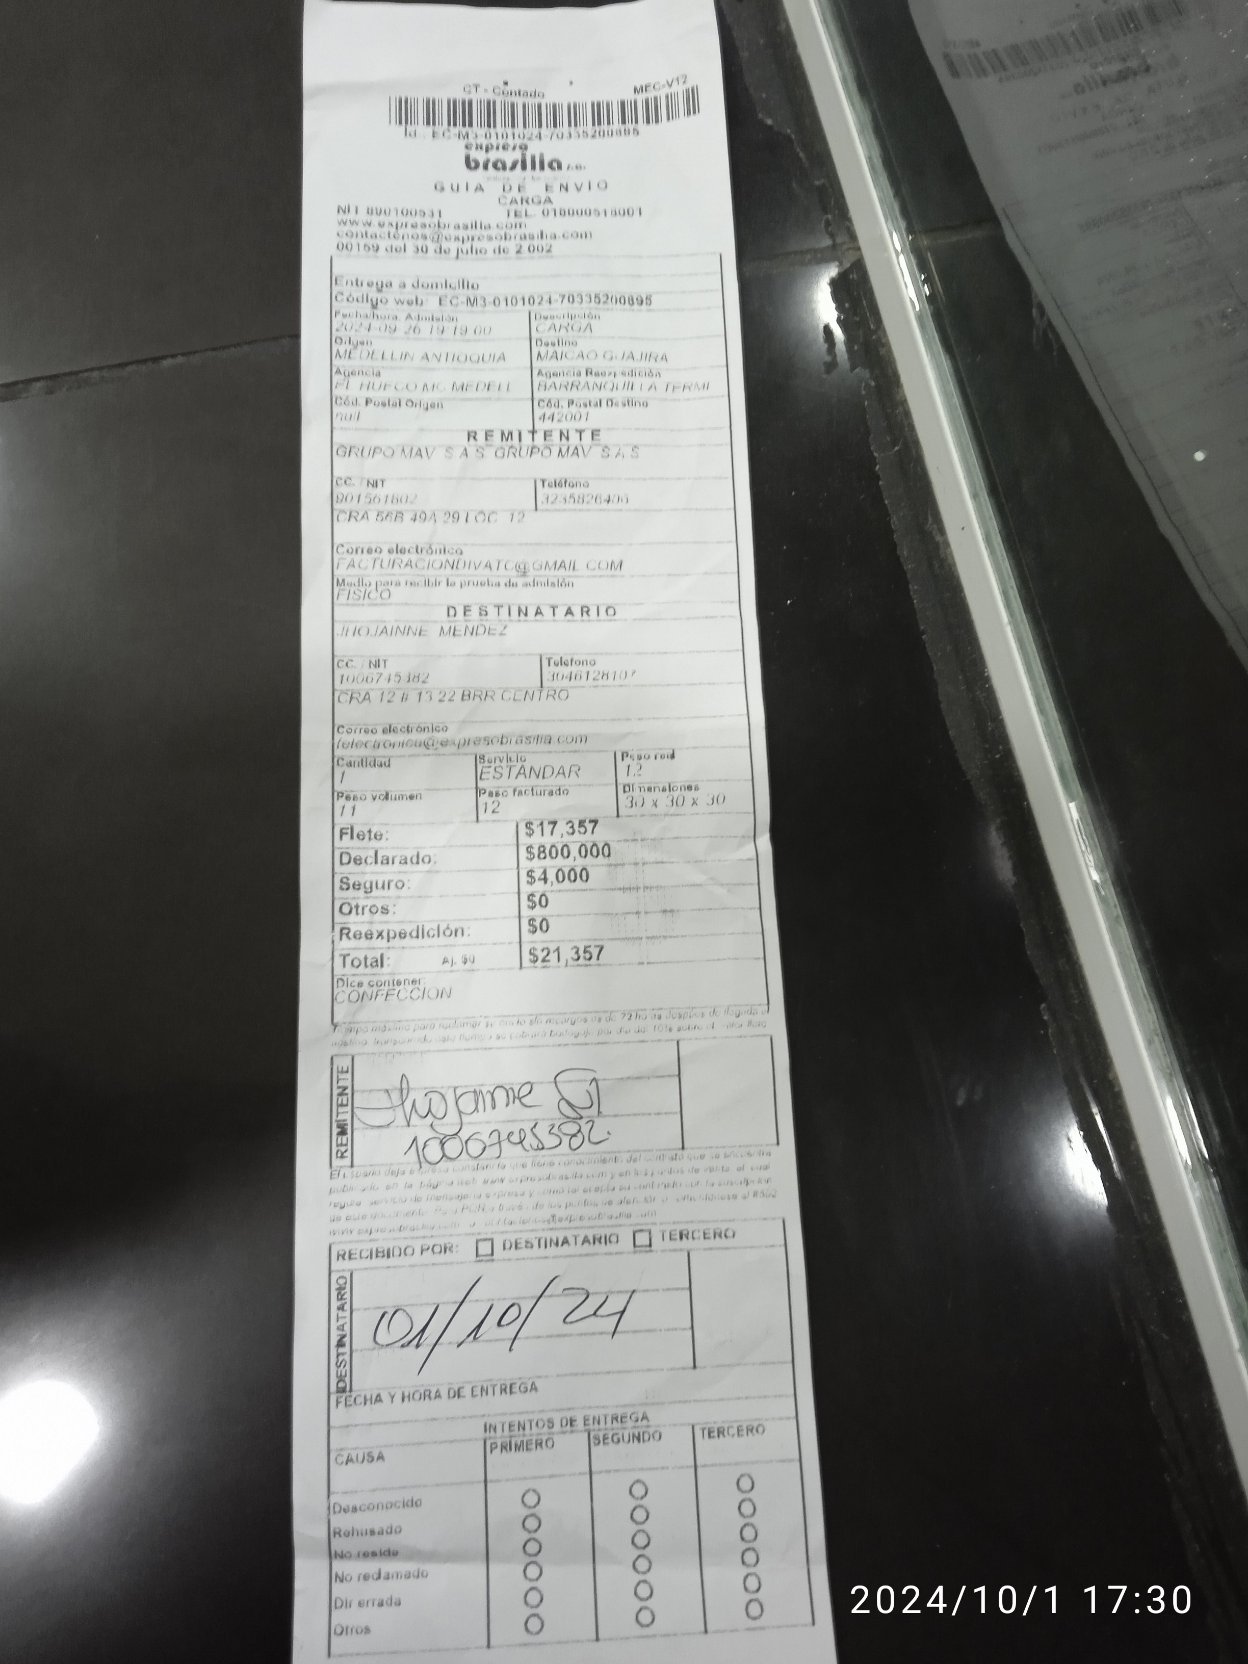 CT - Contado MEC-V12
Id : EC-M3-0101024-70335200895
expreso
brasilia s.a.
GUIA DE ENVIO
CARGA
NIT 890100531 TEL. 018000518001
www.expresobrasilia.com
contactenos@expresobrasilia.com
00159 del 30 de julio de 2.002
Entrega a domicilio
Código web: EC-M3-0101024-70335200895
Fecha/hora. Admisión Descripción
2024-09-26 19:19:00 CARGA
Origen Destino
MEDELLIN ANTIOQUIA MAICAO GUAJIRA
Agencia Agencia Reexpedición
EL HUECO MC MEDELL BARRANQUILLA TERMI
Cód. Postal Origen Cód. Postal Destino
null 442001
REMITENTE
GRUPO MAV S A S GRUPO MAV S A S
CC. / NIT Teléfono
901561802 3235826406
CRA 56B 49A 29 LOC 12
Correo electrónico
FACTURACIONDIVATC@GMAIL.COM
Medio para recibir la prueba de admisión
FISICO
DESTINATARIO
JHOJAINNE MENDEZ
CC. / NIT Teléfono
1006745382 3046128107
CRA 12 # 13 22 BRR CENTRO
Correo electrónico
felectronica@expresobrasilia.com
Cantidad Servicio Peso real
1 ESTÁNDAR 12
Peso volumen Peso facturado Dimensiones
11 12 30 x 30 x 30
Flete: $17,357
Declarado: $800,000
Seguro: $4,000
Otros: $0
Reexpedición: $0
Total: Aj. $0 $21,357
Dice contener:
CONFECCION
REMITENTE
Jhojanne
1006745382.
RECIBIDO POR: DESTINATARIO TERCERO
DESTINATARIO
01/10/24
FECHA Y HORA DE ENTREGA
INTENTOS DE ENTREGA
CAUSA PRIMERO SEGUNDO TERCERO
Desconocido
Rehusado
No reside
No reclamado
Dir errada
Otros
2024/10/1 17:30